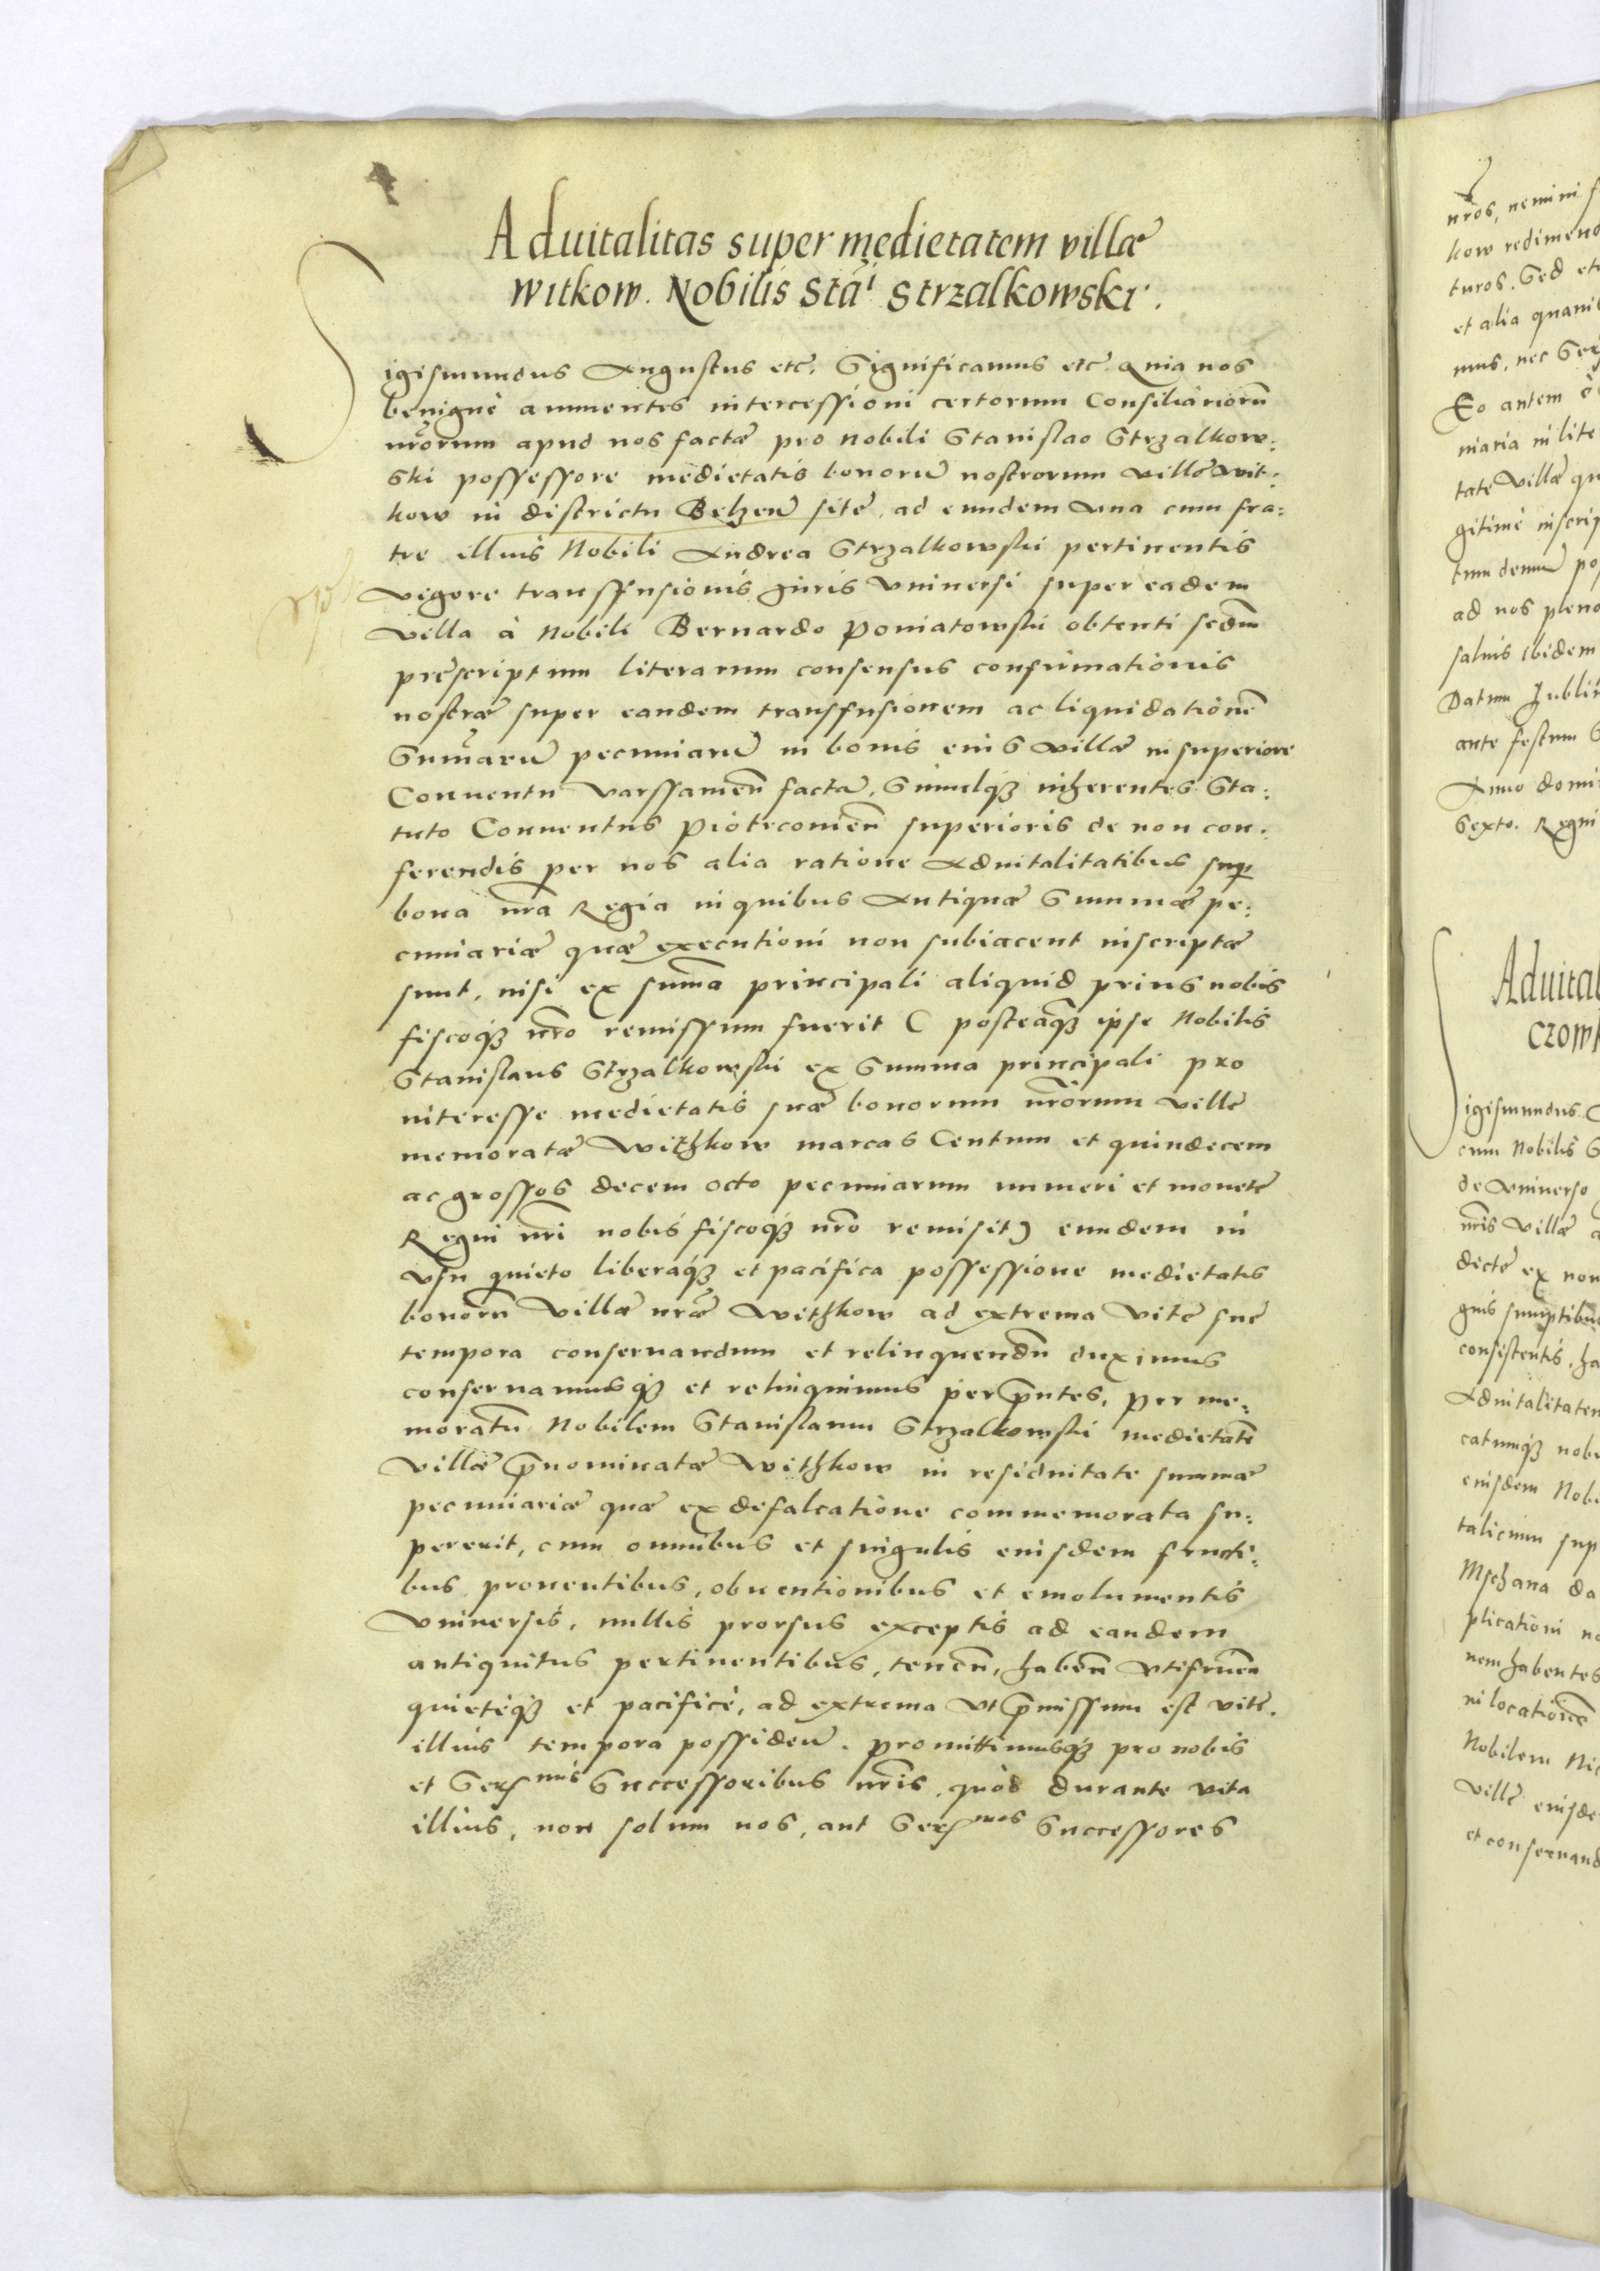 Aduitalitas super medietatem villæ
witkow. Nobilis Stāi Strzalkowski.
Sigismundus Augustus etc̃. Significamus etc̃ Quia nos
benignè annuentes intercessioni certorum Consiliariorũ
nr̃orum apud nos factæ pro Nobili Stanislao Strzalkow:
ski possessore medietatis bonorũ nostrorum villę wit:
kow in districtu Belzeñ sitę, ad eundem una cum fra:
tre illius Nobili Andrea Strzalkowski pertinentis
vigore transfusionis Juris vniuersi super eadem
villa à Nobili Bernardo Poniatowski obtenti secdm
pręscriptum literarum consensus confirmationis
nostræ super eandem transfusionem ac liquidationẽ
Sum̃arũ pecuniarũ in bonis eius villæ in superiore
Conuentu Varssauieñ factã, Simulq̃ inhęrentes Sta:
tuto Conuentus Piotrcouieñ superioris de non con:
ferendis per nos alia ratione Aduitalitatibus sup
bona nr̃a Regia in quibus Antiquæ Summæ pe:
cuniariæ quæ executioni non subiacent inscriptæ
sunt, nisi ex sum̃a principali aliquid prius nobis
fiscoq̃ nr̃o remissum fuerit ( posteaq̃ ipse Nobilis
Stanislaus Strzalkowski ex Summa principali pro
interesse medietatis suæ bonorum nr̃orum villę
memoratæ Withkow marcas Centum et quindecem
ac grossos decem octo pecuniarum numeri et monetę
Regni nr̃i nobis fiscoq̃ nr̃o remisit) eundem in
vsu quieto liberaq̃ et pacifica possessione medietatis
bonorũ villæ nr̃æ Withkow ad extrema vitę suę
tempora conseruandum et relinquendũ duximus
conseruamusq̃ et relinquimus per p̃ntes, per me:
moratũ Nobilem Stanislaum Strzalkowski medietatẽ
villæ p̃nominatæ Withkow in residuitate summæ
pecuniariæ quæ ex defalcatione commemorata su:
pererit, cum omnibus et singulis eiusdem fructi:
bus prouentibus, obuentionibus et emolumentis
vniuersis, nullis prorsus exceptis ad eandem
antiquitus pertinentibus, teneñ, habeñ vtifrueñ
quietęq̃ et pacificè, ad extrema vt p̃missum est vitę
illius tempora possideñ. promittimusq̃ pro nobis
et Sersmis Successoribus nr̃is, quòd durante vita
illius, non solum nos, aut Sersmos Successores
nr̃os, nemini
kow redimend
turos. Sed et
et alia
mus, nec Ser
Eo autem
niaria in lite
tate villæ qu
gitimè inscrip
tum demũ po
ad nos pleno
saluis ibidem
Datum Lubli
ante festum
Anno domi
Sexto. Regni
Aduital
czow
Sigismundus
cum Nobilis S
de vniuerso
nr̃is villæ
dictę ex non
guis sumptibus
consistentis, ha
Aduitalitatem
catumq̃ nobi
eiusdem Nobi
talicium sup
Mschana da
plicationi no
nem habentes
in locationẽ
Nobilem Nic
villę eiusde
et conseruand